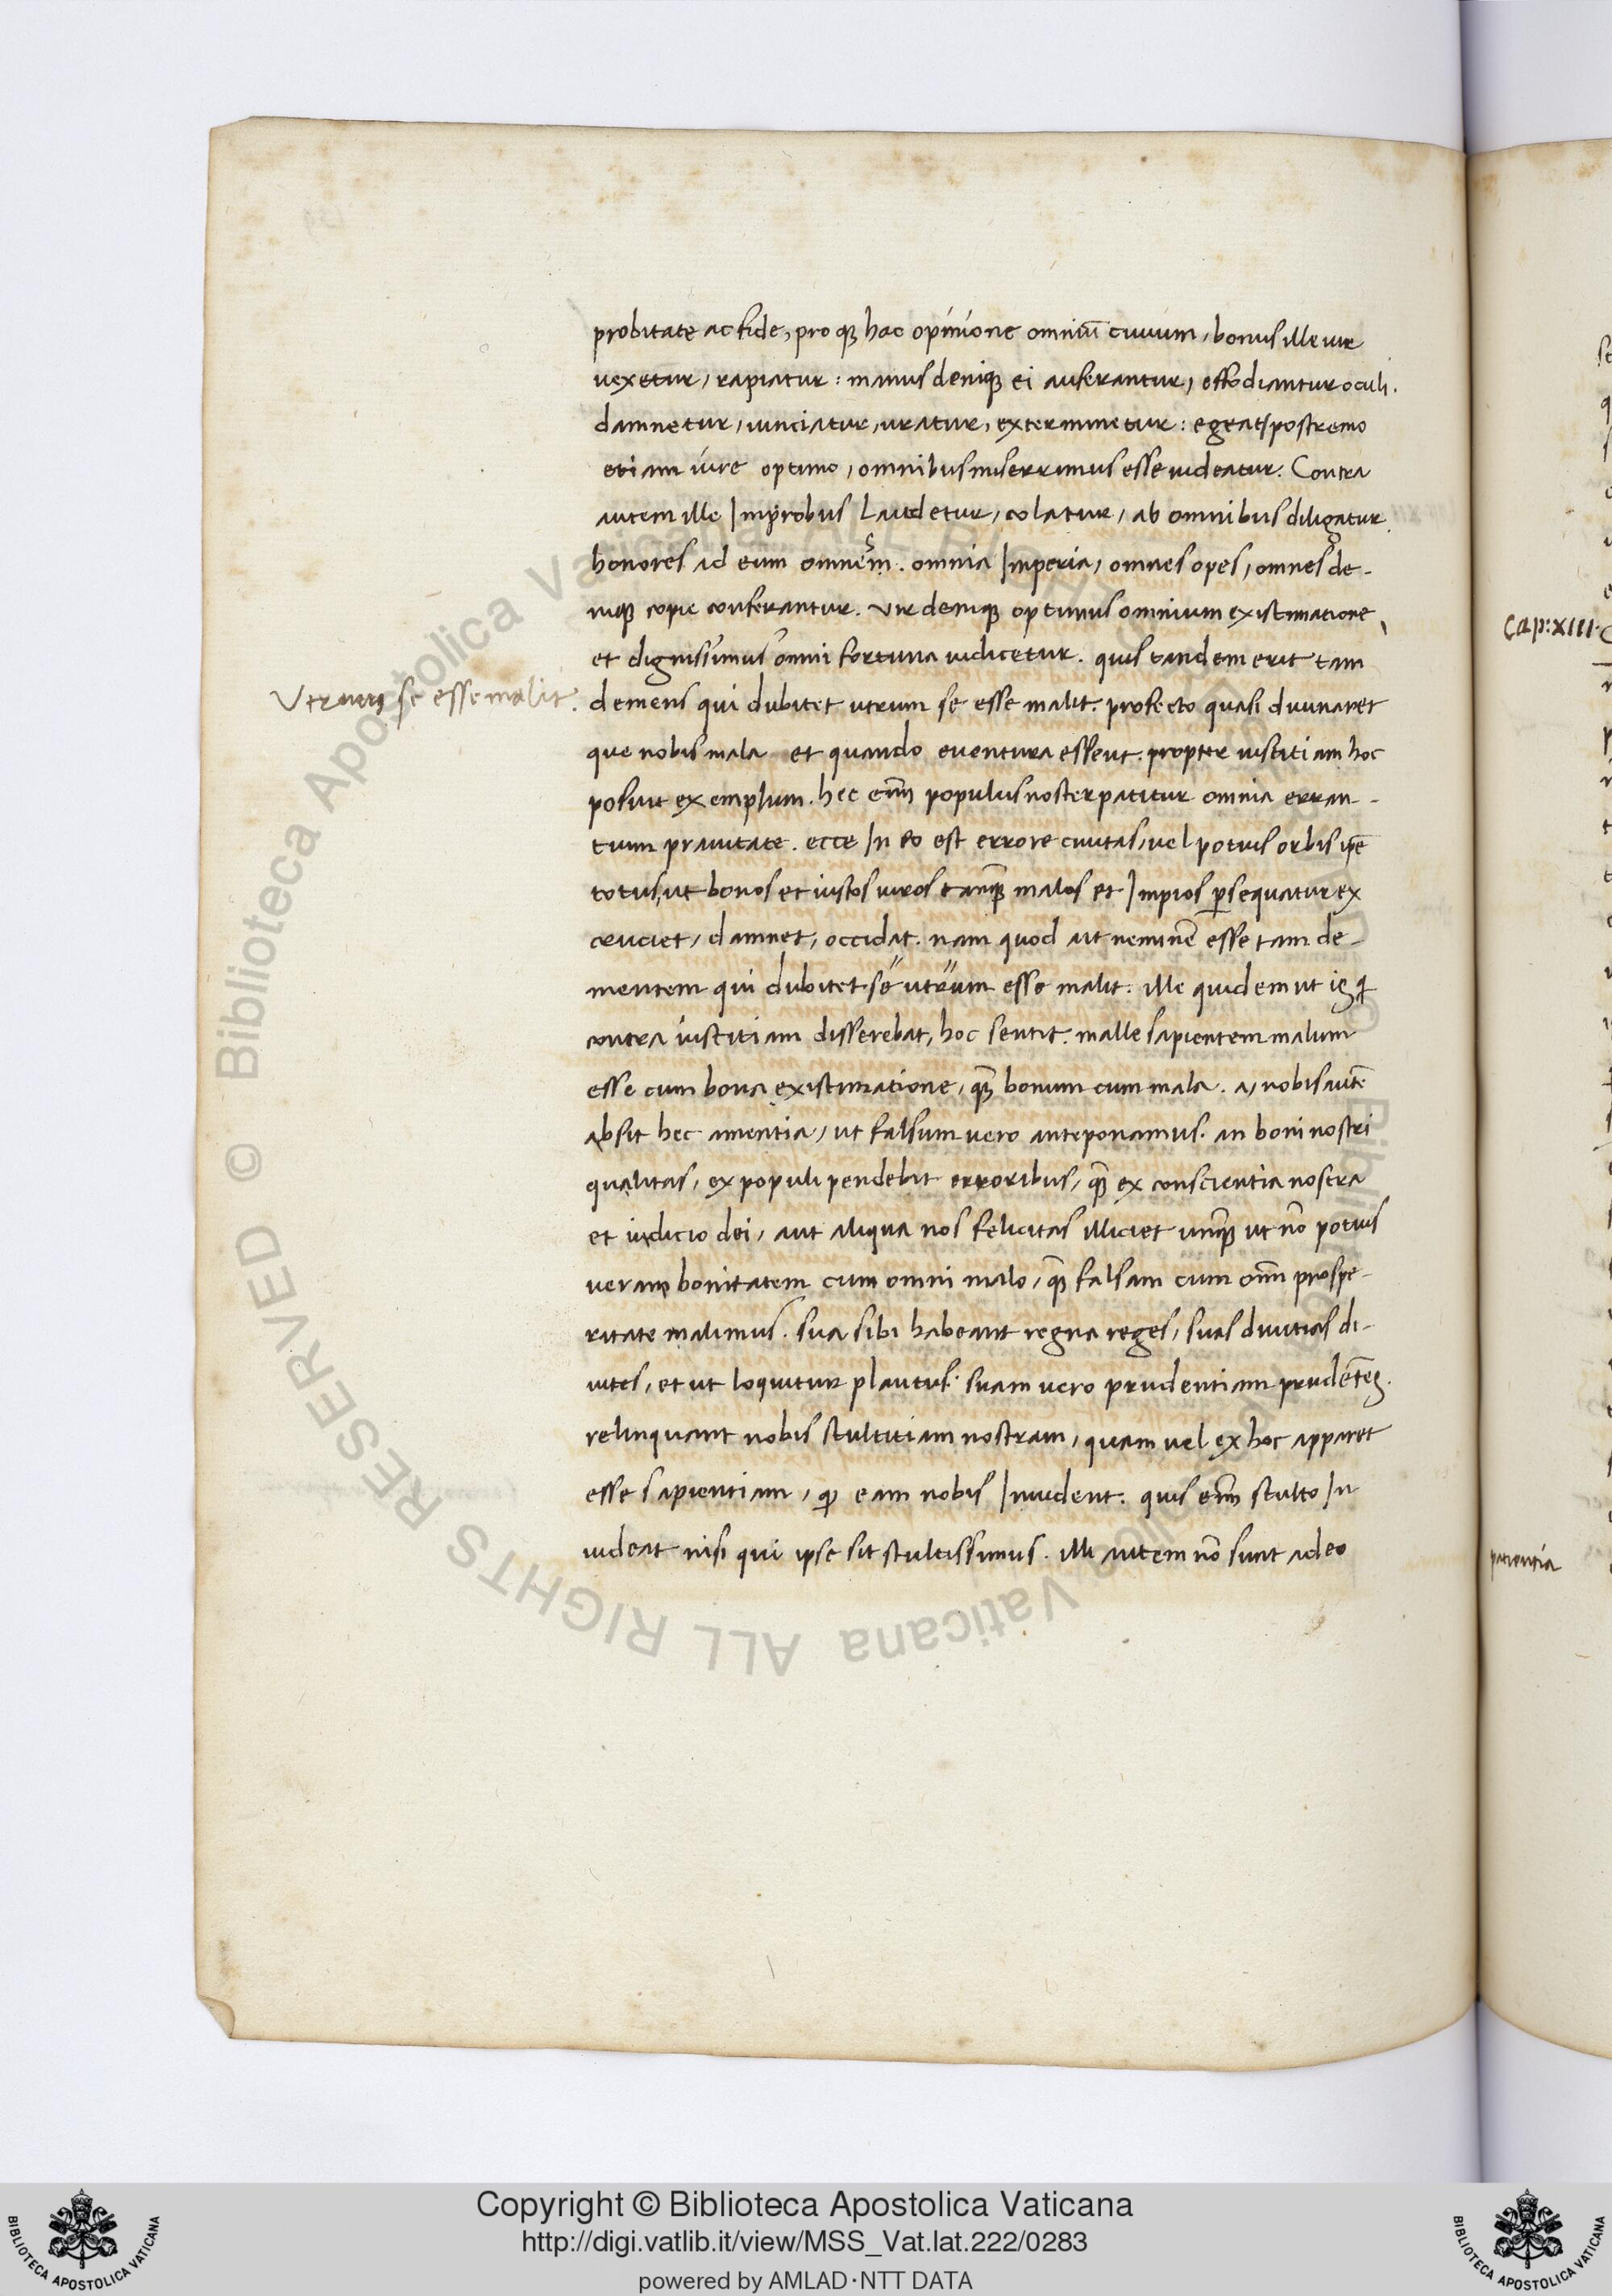 probitate ac fide, pro qꝫ hac opinione omniū ciuium, bonus ille uir
uexetur, rapiatur: manus deniqꝫ ei auferantur, effodiantur oculi.
damnetur, uinciatur, uratur, exterminetur: egeat, postremo
etiam iure optimo, omnibus miserrimus esse uideatur. Contra
autem ille Improbus Laudetur, colatur, ab omnibus diligatur
honores ad eum omnes. omnia Imperia, omnes opes, omnes de-
niqꝫ copie conferantur. vir deniqꝫ optimus omnium existimatione,
et dignissimus omni fortuna iudicetur. quis tandem erit tam
Utrum se esse malit.
demens qui dubitet utrum se esse malit. profecto quasi diuinaret
que nobis mala et quando euentura essent. propter iustitiam hoc
posuit exemplum. hec enī populus noster patitur omnia erran-
tium prauitate. ecce In eo est errore ciuitas, uel potius orbis ipē
totus, ut bonos et iustos uiros tanqꝫ malos et Impios ꝑsequatur ex
cruciet, damnet, occidat. nam quod ait neminē esse tam de-
mentem qui dubitet se utrum esse malit. ille quidem ut is q
contra iustitiam disserebat, hoc sentit. malle sapientem malum
esse cum bona existimatione, qꝫ bonum cum mala. a, nobis autē
absit hec amentia, ut falsum uero anteponamus. an boni nostri
qualitas, ex populi pendebit erroribus, qꝫ ex conscientia nostra
et iudicio dei, aut aliqua nos felicitas illiciet unqꝫ ut nō potius
veram bonitatem cum omni malo, qꝫ falsam cum oī prospe-
ritate malimus. sua sibi habeant regna reges, suas diuitias di-
uites, et ut loquitur plautus. suam uero prudentiam prudētes.
relinquant nobis stultitiam nostram, quam uel ex hoc apparet
esse sapientiam, ꝙ eam nobis Inuident. quis enī stulto In
uideat nisi qui ipse sit stultissimus. illi autem nō sunt adeo
Cap: XIII.
patientia
© Biblioteca Apostolica Vaticana ALL RIGHTS RESERVED © Biblioteca Apostolica Vaticana ALL RIGHTS RESERVED
Copyright © Biblioteca Apostolica Vaticana
http://digi.vatlib.it/view/MSS_Vat.lat.222/0283
powered by AMLAD·NTT DATA
BIBLIOTECA APOSTOLICA VATICANA
BIBLIOTECA APOSTOLICA VATICANA